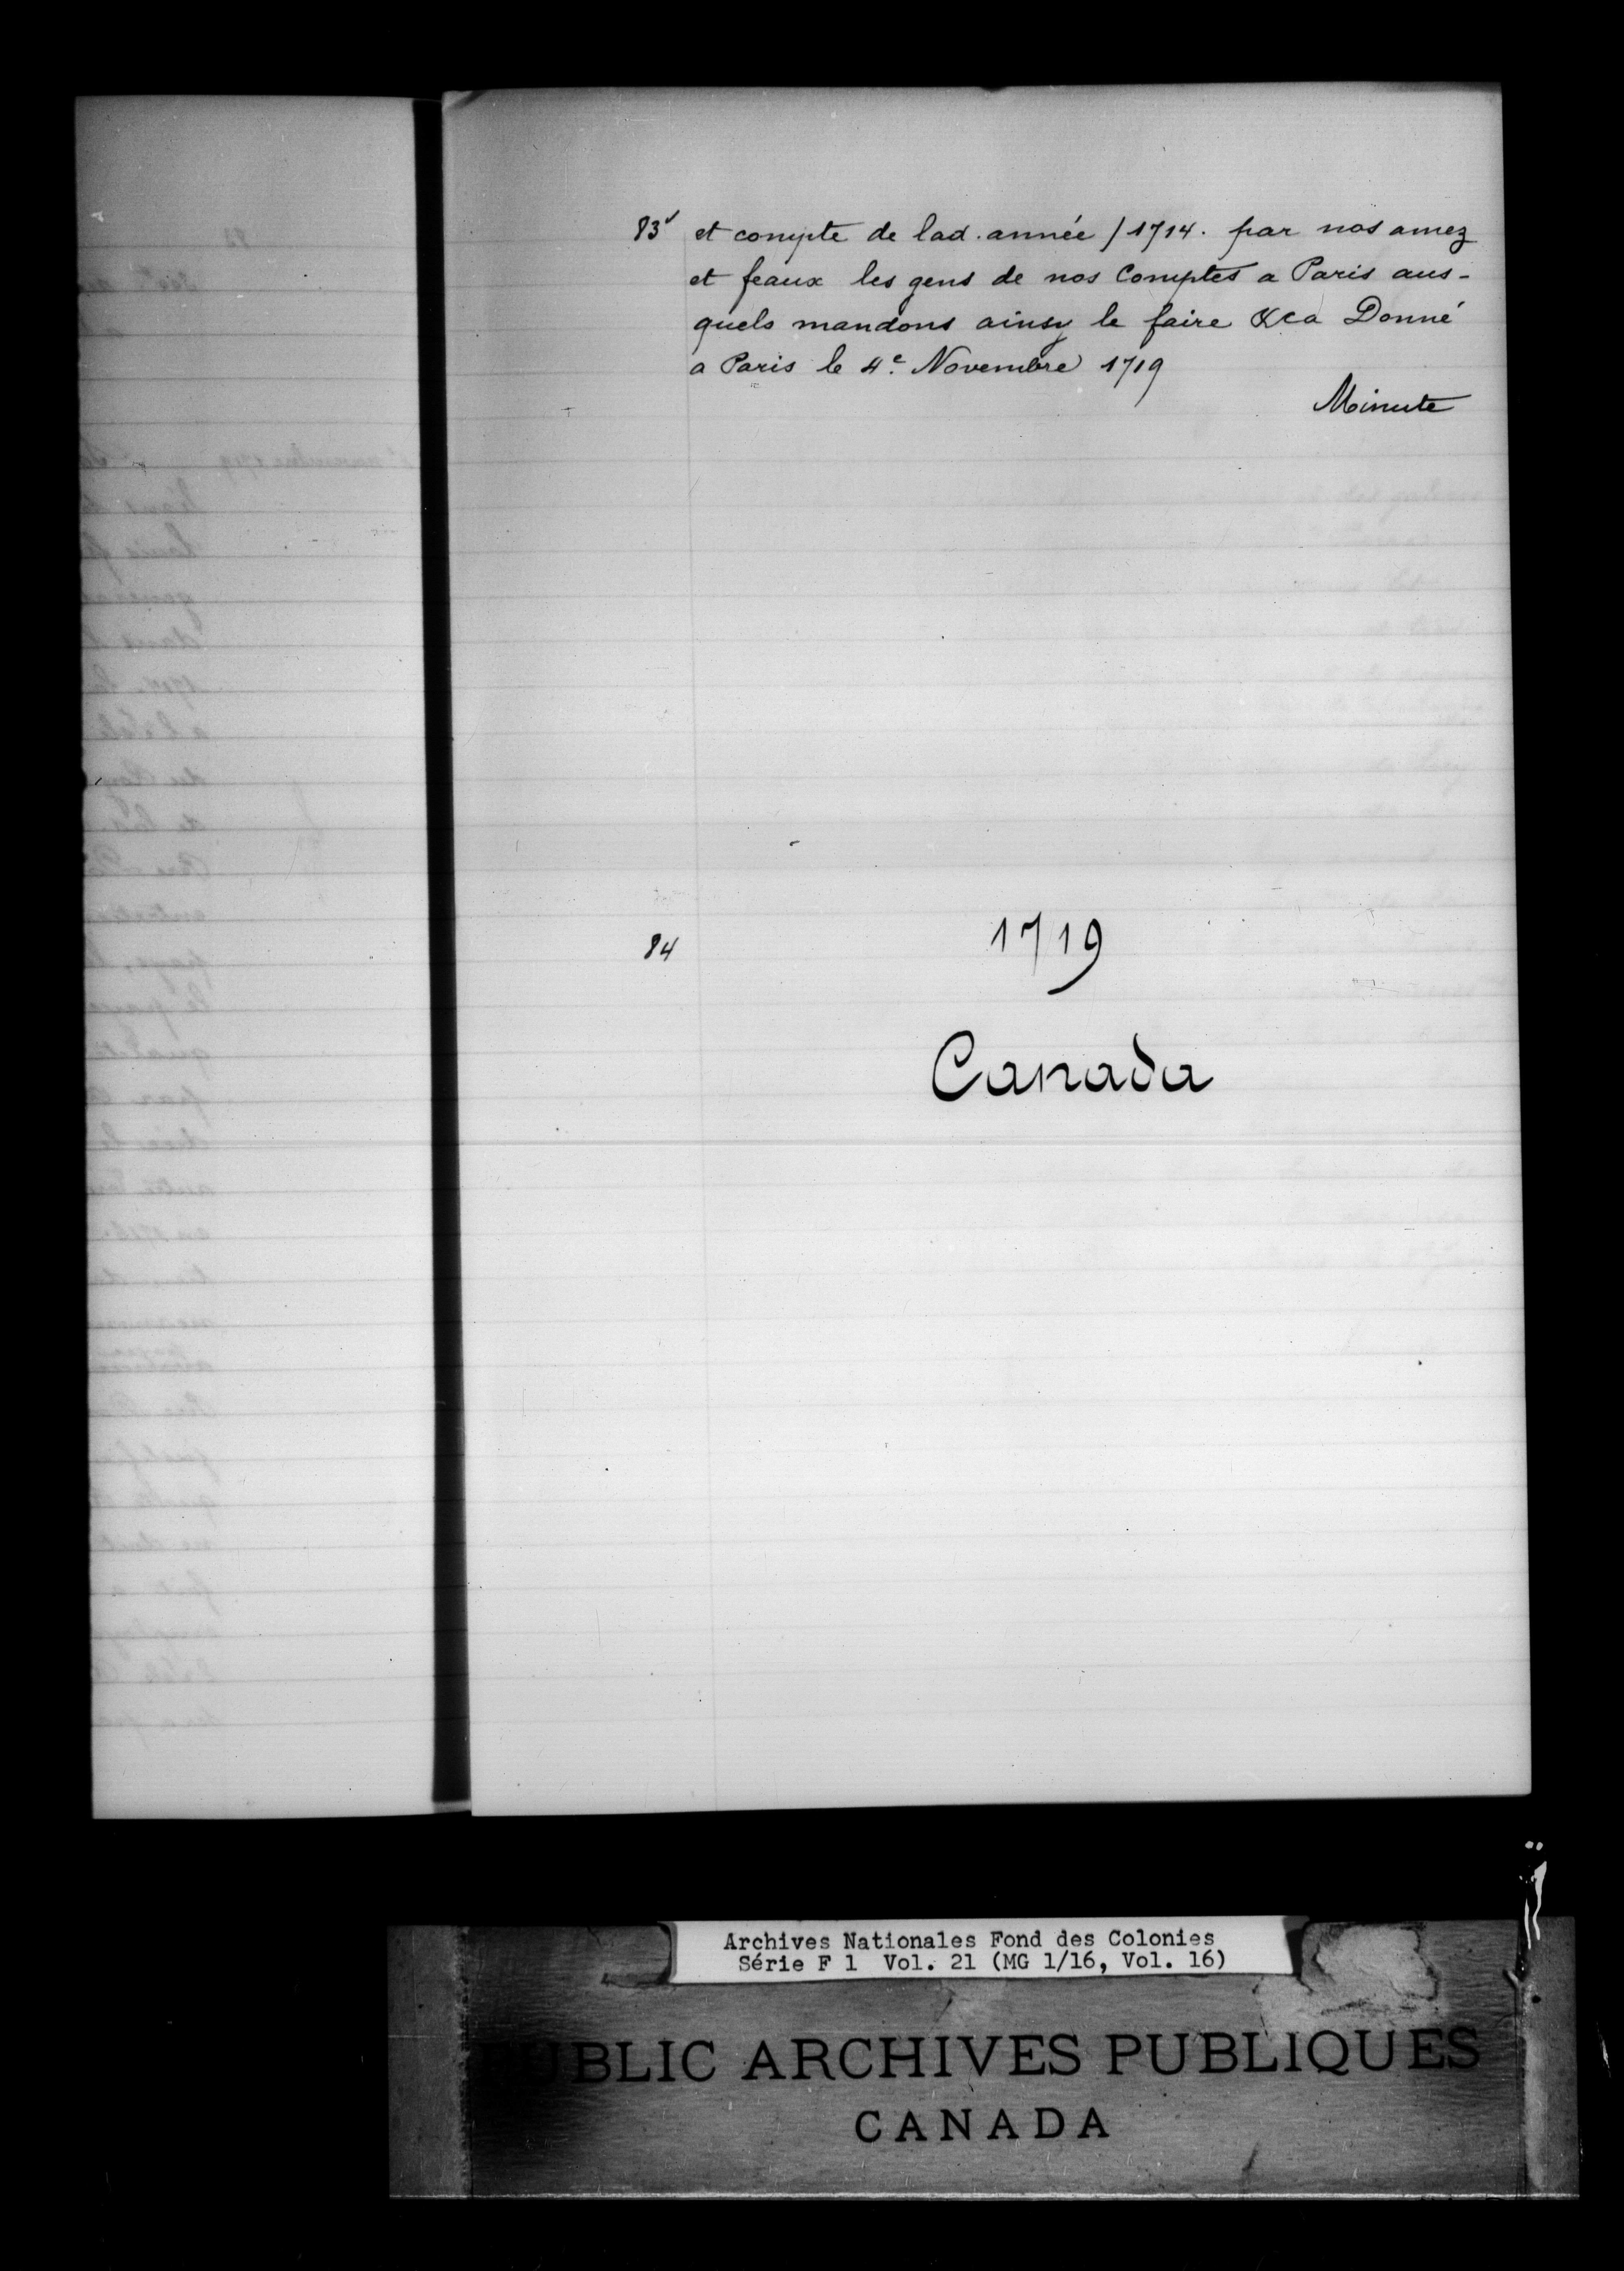 83v et compte de lad. année / 1714. par nos amez
et feaux les gens de nos Comptes a Paris aus-
quels mandons ainsy le faire &ca Donné
a Paris le 4e Novembre 1719
Minute
84
1719
Canada
Archives Nationales Fond des Colonies
Série F 1 Vol. 21 (MG 1/16, Vol. 16)
PUBLIC ARCHIVES PUBLIQUES
CANADA